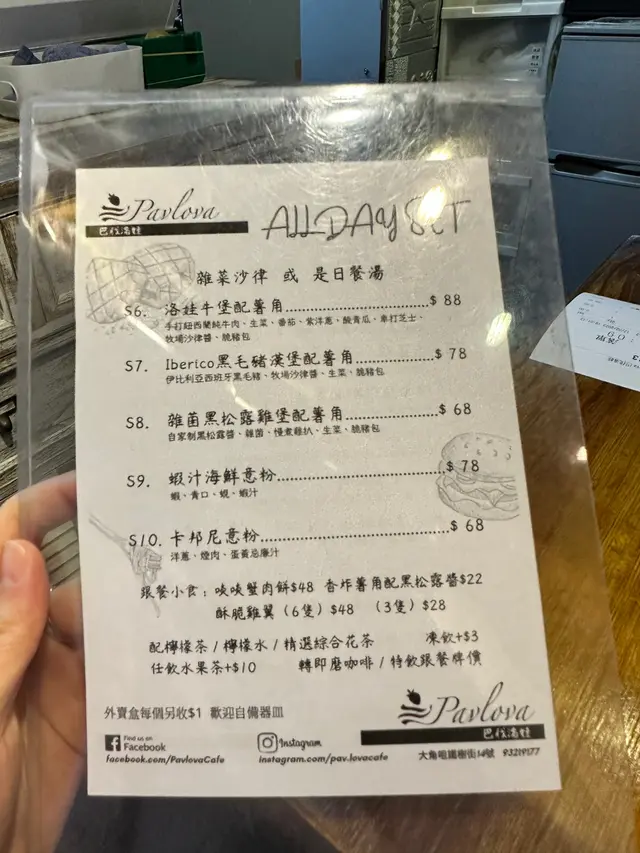 Pavlova
巴伐洛娃
ALL DAY SET
雜菜沙律 或 是日餐湯
S6. 洛娃牛堡配薯角 $ 88
手打紐西蘭純牛肉、生菜、番茄、紫洋蔥、酸青瓜、車打芝士、
牧場沙律醬、脆豬包
S7. Iberico黑毛豬漢堡配薯角 $ 78
伊比利亞西班牙黑毛豬、牧場沙律醬、生菜、脆豬包
S8. 雜菌黑松露雞堡配薯角 $ 68
自家制黑松露醬、雜菌、慢煮雞扒、生菜、脆豬包
S9. 蝦汁海鮮意粉 $ 78
蝦、青口、蜆、蝦汁
S10. 卡邦尼意粉 $ 68
洋蔥、煙肉、蛋黃忌廉汁
跟餐小食：唊唊蟹肉餅$48 香炸薯角配黑松露醬$22
酥脆雞翼（6隻）$48 （3隻）$28
配檸檬茶 / 檸檬水 / 精選綜合花茶 凍飲+$3
任飲水果茶+$10 轉即磨咖啡 / 特飲跟餐牌價
外賣盒每個另收$1 歡迎自備器皿
Pavlova
巴伐洛娃
Find us on
Facebook
facebook.com/PavlovaCafe
Instagram
instagram.com/pav.lovacafe
大角咀鐵樹街14號 93219177